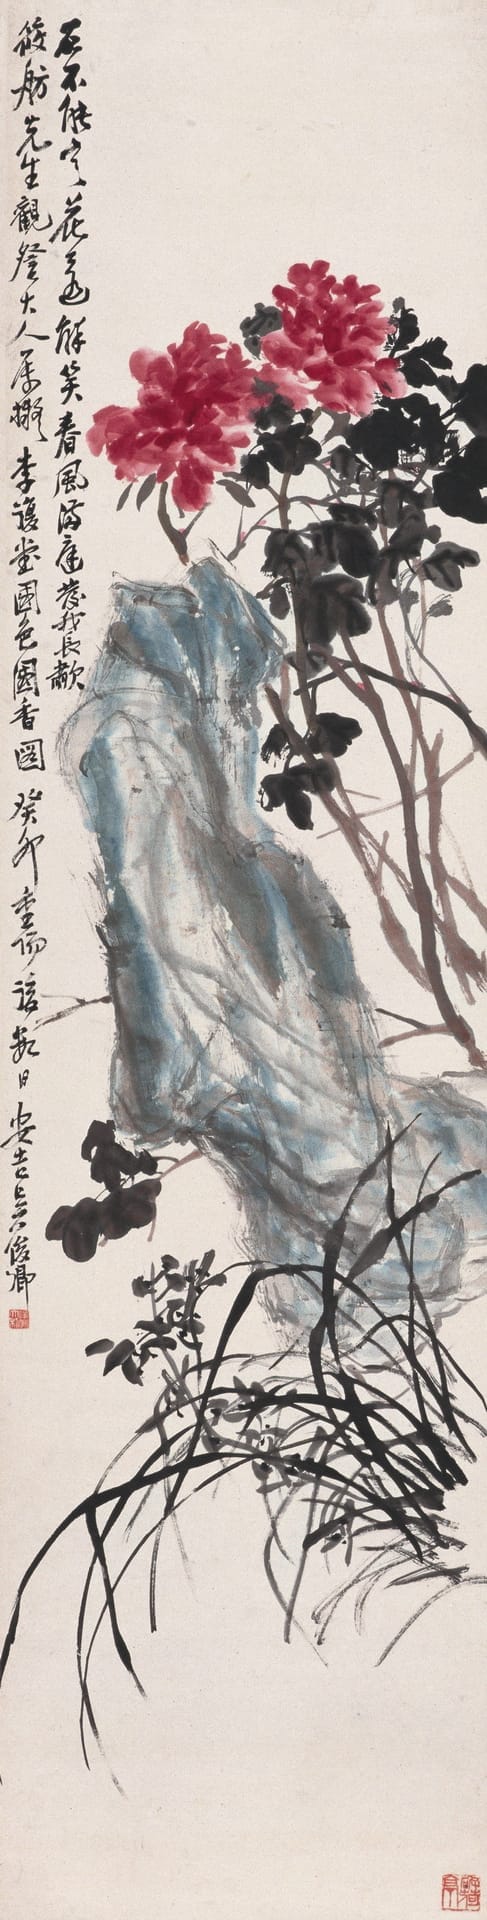 石不能言花還解笑春風滿庭發我長歗
筱舫先生觀詧大人屬擬李復堂國色國香圖癸卯重陽後數日安吉吳俊卿